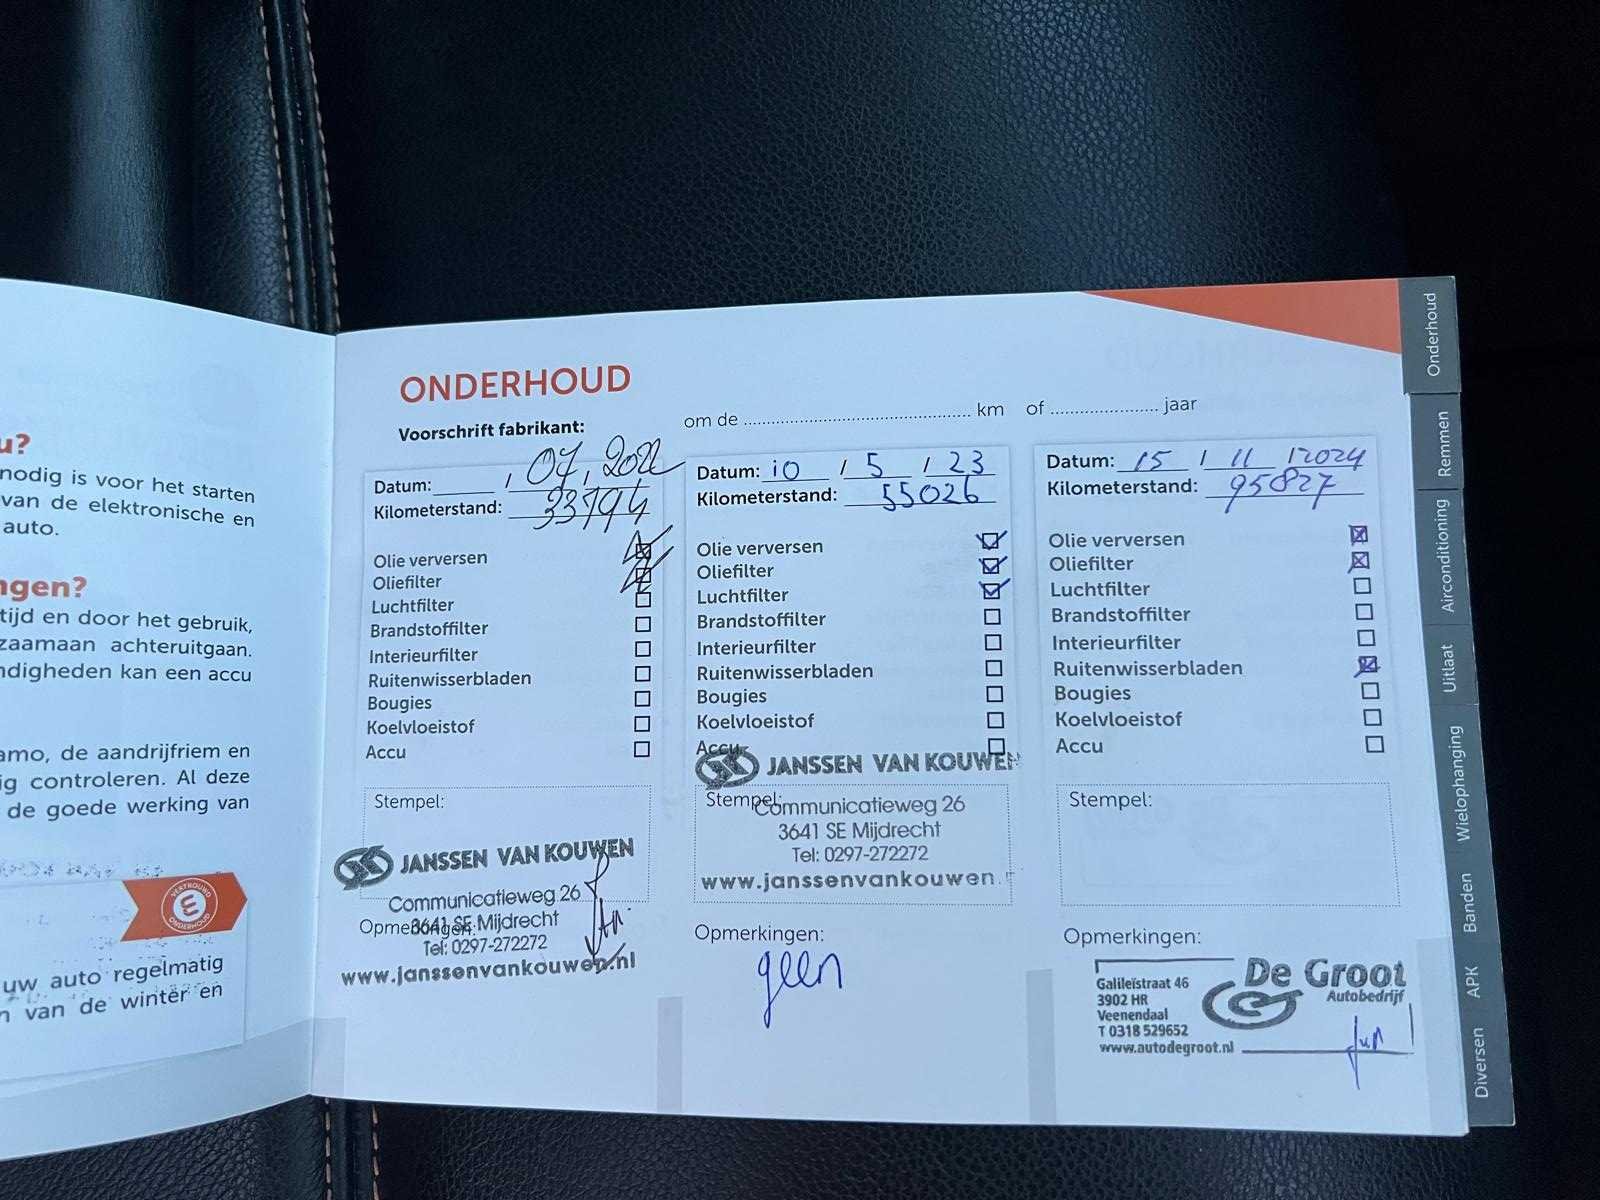 u?
nodig is voor het starten
van de elektronische en
auto.
ngen?
tijd en door het gebruik,
zaamaan achteruitgaan.
ndigheden kan een accu
amo, de aandrijfriem en
ig controleren. Al deze
de goede werking van
VERTROUWD
ONDERHOUD
uw auto regelmatig
n van de winter en
ONDERHOUD
Voorschrift fabrikant: om de km of jaar
Datum: , 07, 2022
Kilometerstand: 33194
Olie verversen
Oliefilter
Luchtfilter
Brandstoffilter
Interieurfilter
Ruitenwisserbladen
Bougies
Koelvloeistof
Accu
Stempel:
JANSSEN VAN KOUWEN
Communicatieweg 26
3641 SE Mijdrecht
Opmerkingen:
Tel: 0297-272272
www.janssenvankouwen.nl
Datum: 10 / 5 / 23
Kilometerstand: 55026
Olie verversen
Oliefilter
Luchtfilter
Brandstoffilter
Interieurfilter
Ruitenwisserbladen
Bougies
Koelvloeistof
Accu
JANSSEN VAN KOUWEN
Stempel:
Communicatieweg 26
3641 SE Mijdrecht
Tel: 0297-272272
www.janssenvankouwen.
Opmerkingen:
geen
Datum: 15 / 11 / 2024
Kilometerstand: 95827
Olie verversen
Oliefilter
Luchtfilter
Brandstoffilter
Interieurfilter
Ruitenwisserbladen
Bougies
Koelvloeistof
Accu
Stempel:
Opmerkingen:
De Groot
Autobedrijf
Galileïstraat 46
3902 HR
Veenendaal
T 0318 529652
www.autodegroot.nl
Onderhoud
Remmen
Airconditioning
Uitlaat
Wielophanging
Banden
APK
Diversen